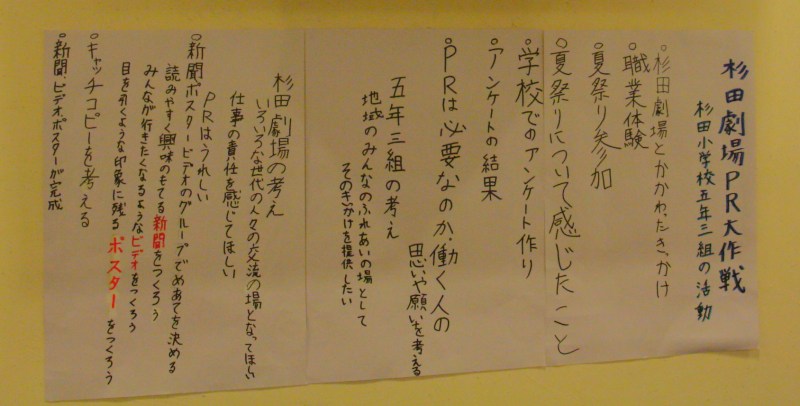 杉田劇場PR大作戦
杉田小学校五年三組の活動
○杉田劇場とかかわったきっかけ
○職業体験
○夏祭り参加
○夏祭りについて感じたこと
○学校でのアンケート作り
○アンケートの結果
○PRは必要なのか・働く人の
思いや願いを考える
五年三組の考え
地域のみんなのふれあいの場として
そのきっかけを提供したい
杉田劇場の考え
いろいろな世代の人々の交流の場となってほしい
仕事の責任を感じてほしい
PRはうれしい
○新聞・ポスター・ビデオのグループでめあてを決める
読みやすく興味のもてる新聞をつくろう
みんなが行きたくなるようなビデオをつくろう
目を引くような印象に残るポスターをつくろう
○キャッチコピーを考える
○新聞・ビデオ・ポスターが完成